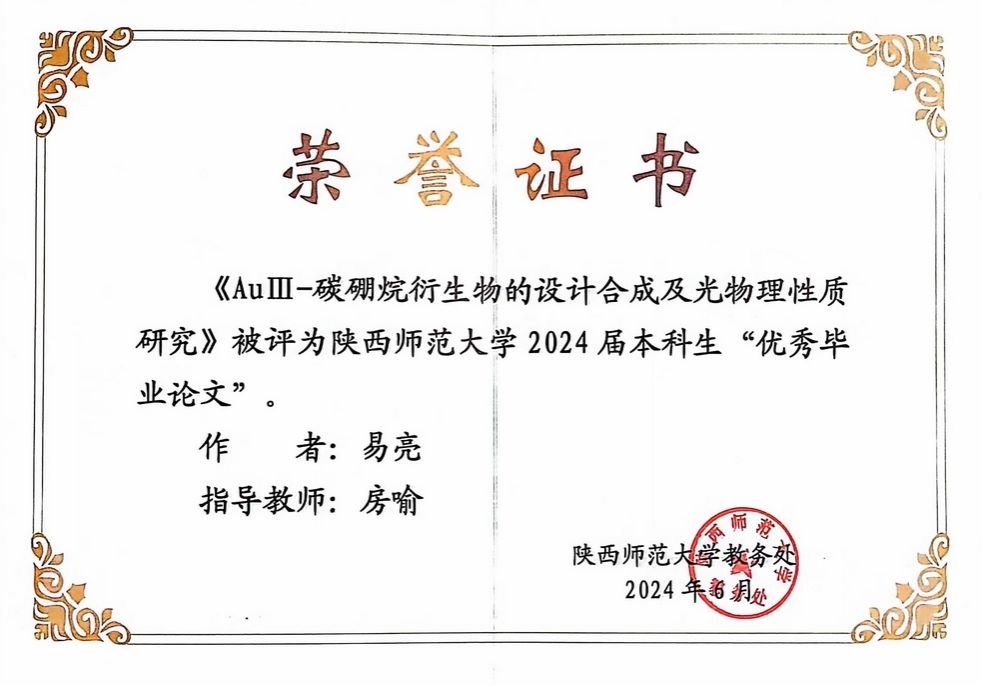 荣誉证书
《AuⅢ-碳硼烷衍生物的设计合成及光物理性质
研究》被评为陕西师范大学2024届本科生“优秀毕
业论文”。
作 者：易亮
指导教师：房喻
陕西师范大学教务处
2024年6月
陕西师范大学
教务处